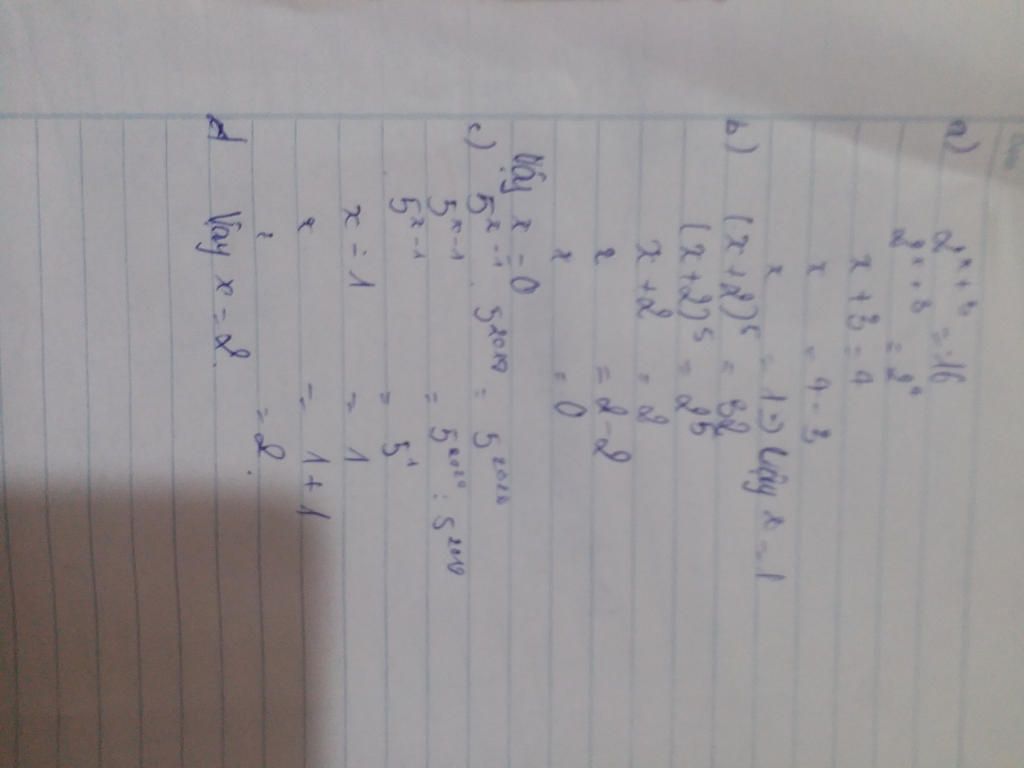 a) 2^{x+3} = 16
2^{x+3} = 2^4
x + 3 = 4
x = 4 - 3
x = 1 => Vậy x = 1
b) (x + 2)^5 = 32
(x + 2)^5 = 2^5
x + 2 = 2
x = 2 - 2
x = 0
Vậy x = 0
c) 5^{x-1} . 5^{2019} = 5^{2020}
5^{x-1} = 5^{2020} : 5^{2019}
5^{x-1} = 5^1
x - 1 = 1
x = 1 + 1
= 2
Vậy x = 2